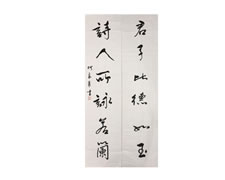 君子比德如玉
詩人所詠若蘭